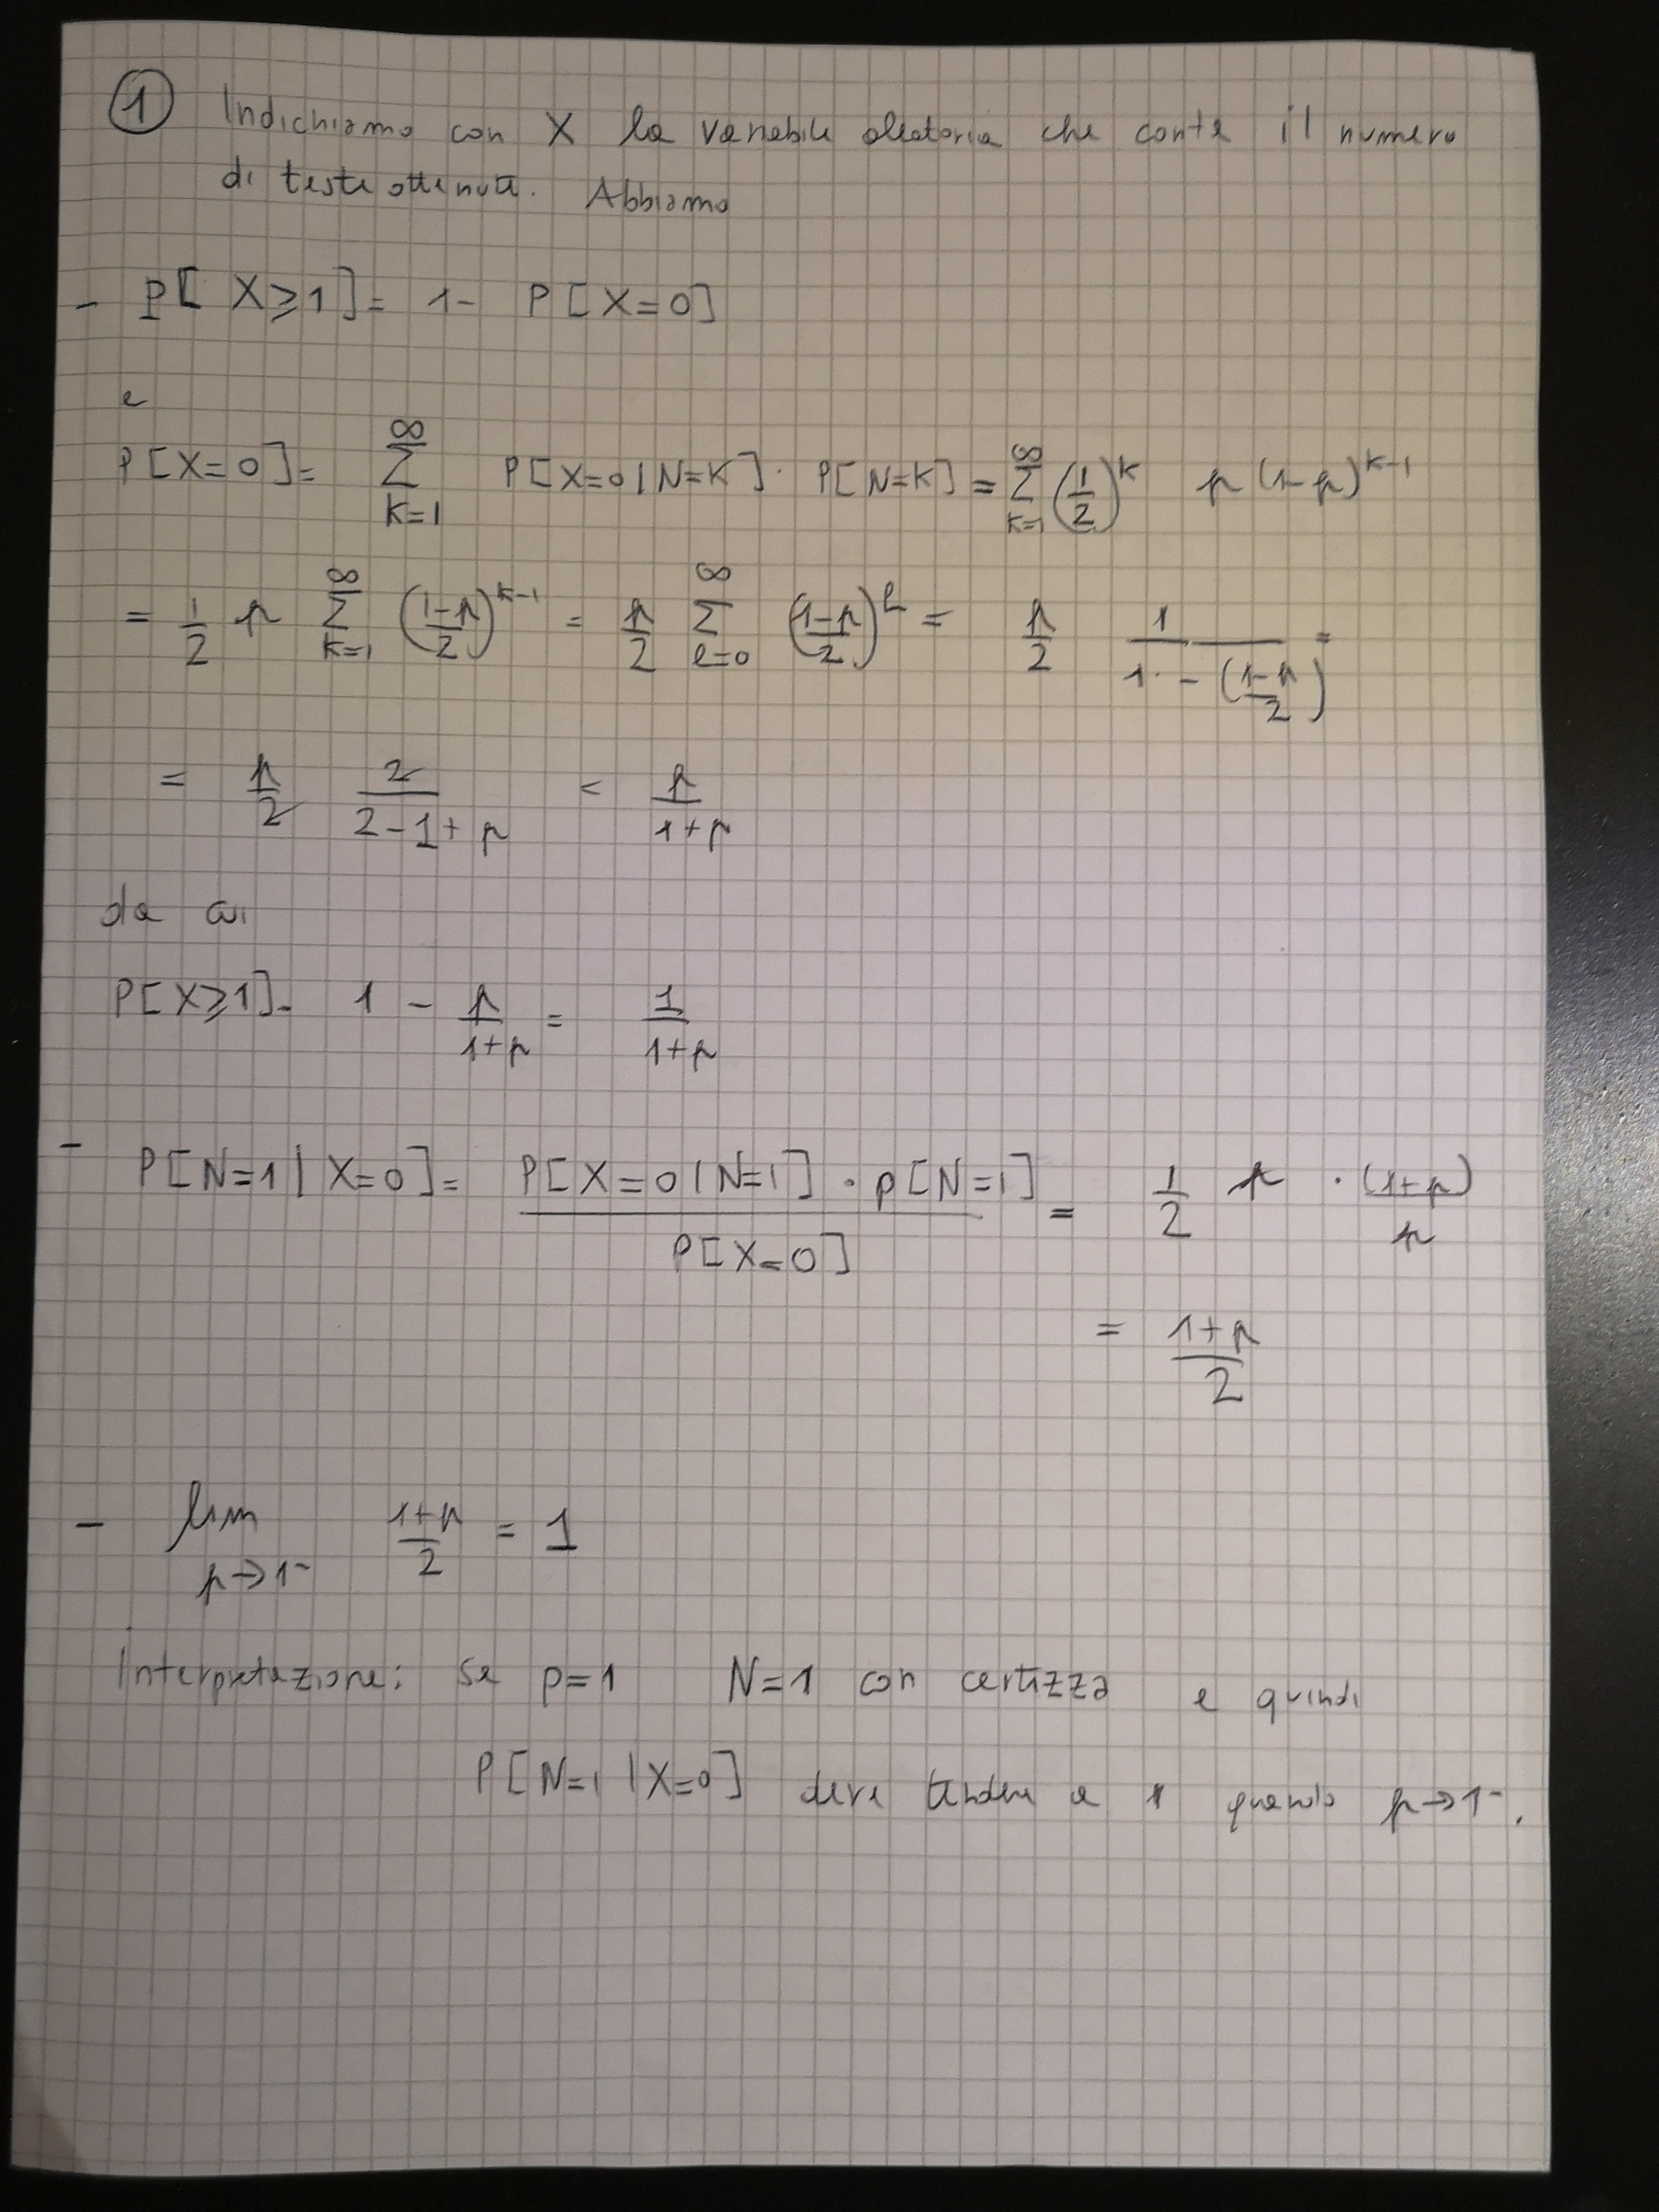 ① Indichiamo con X la variabile aleatoria che conta il numero
di teste ottenute. Abbiamo
- P[X≥1] = 1 - P[X=0]
e
P[X=0] = ∑_{k=1}^{∞} P[X=0|N=k] · P[N=k] = ∑_{k=1}^{∞} (1/2)^k p(1-p)^{k-1}
= 1/2 p ∑_{k=1}^{∞} ((1-p)/2)^{k-1} = p/2 ∑_{l=0}^{∞} ((1-p)/2)^l = p/2 1/(1 - ((1-p)/2)) =
= p/2 2/(2-1+p) = p/(1+p)
da cui
P[X≥1] = 1 - p/(1+p) = 1/(1+p)
- P[N=1|X=0] = (P[X=0|N=1] · P[N=1])/P[X=0] = 1/2 p · (1+p)/p
= (1+p)/2
- lim_{p→1⁻} (1+p)/2 = 1
Interpretazione: se p=1 N=1 con certezza e quindi
P[N=1|X=0] deve tendere a 1 quando p→1⁻.